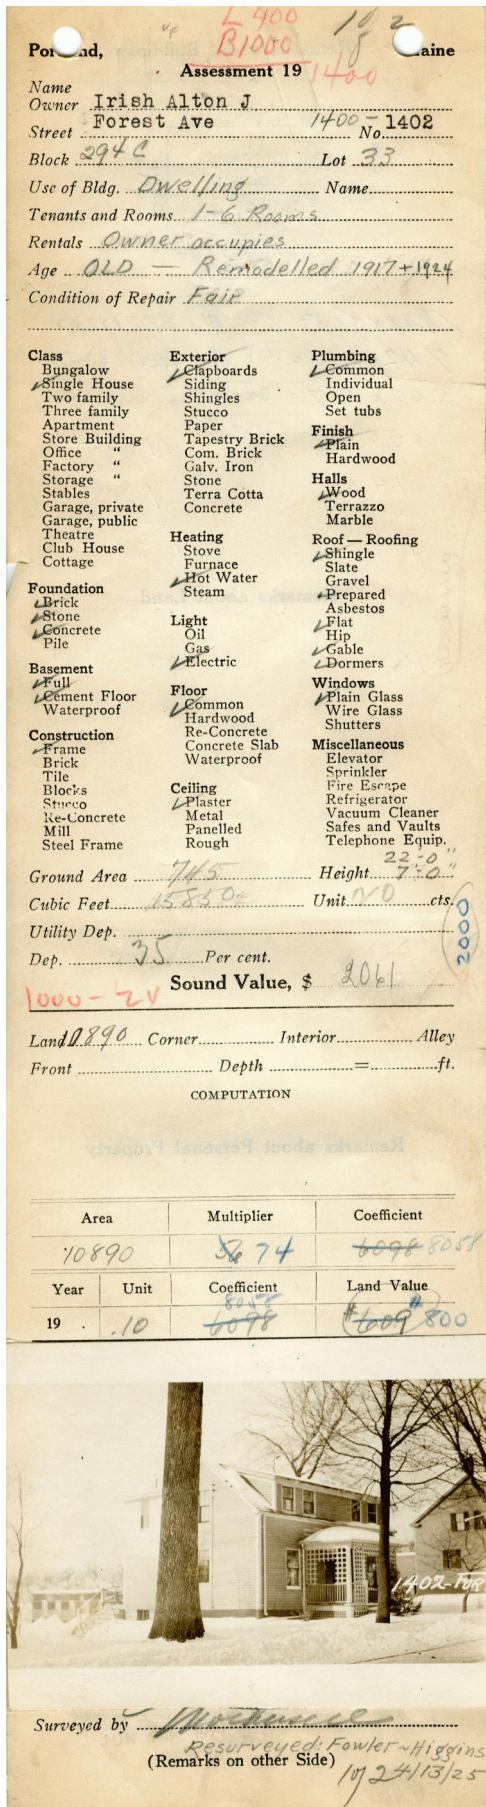 L 400
B1000
1400
1 of 2
Portland, Maine
Assessment 19
Name
Owner Irish Alton J
Street Forest Ave 1400- No. 1402
Block 294 C Lot 33
Use of Bldg. Dwelling Name
Tenants and Rooms 1-6 Rooms
Rentals Owner occupies
Age OLD — Remodelled 1917+1924
Condition of Repair Fair
Class
Bungalow
Single House
Two family
Three family
Apartment
Store Building
Office "
Factory "
Storage "
Stables
Garage, private
Garage, public
Theatre
Club House
Cottage
Foundation
Brick
Stone
Concrete
Pile
Basement
Full
Cement Floor
Waterproof
Construction
Frame
Brick
Tile
Blocks
Stucco
Re-Concrete
Mill
Steel Frame
Exterior
Clapboards
Siding
Shingles
Stucco
Paper
Tapestry Brick
Com. Brick
Galv. Iron
Stone
Terra Cotta
Concrete
Heating
Stove
Furnace
Hot Water
Steam
Light
Oil
Gas
Electric
Floor
Common
Hardwood
Re-Concrete
Concrete Slab
Waterproof
Ceiling
Plaster
Metal
Panelled
Rough
Plumbing
Common
Individual
Open
Set tubs
Finish
Plain
Hardwood
Halls
Wood
Terrazzo
Marble
Roof — Roofing
Shingle
Slate
Gravel
Prepared
Asbestos
Flat
Hip
Gable
Dormers
Windows
Plain Glass
Wire Glass
Shutters
Miscellaneous
Elevator
Sprinkler
Fire Escape
Refrigerator
Vacuum Cleaner
Safes and Vaults
Telephone Equip.
22'-0"
Ground Area 745 Height 7'-0"
Cubic Feet 15850± Unit 20 cts.
Utility Dep.
2000
Dep. 35 Per cent.
Sound Value, $ 2061
1000 - 24
Land 10890 Corner Interior Alley
Front Depth = ft.
COMPUTATION
Area Multiplier Coefficient
10890 56 74 6098 8058
Year Unit Coefficient Land Value
8058
19 .10 6098 $609 $800
1402-FOR
Surveyed by
Resurveyed: Fowler ~ Higgins
(Remarks on other Side)